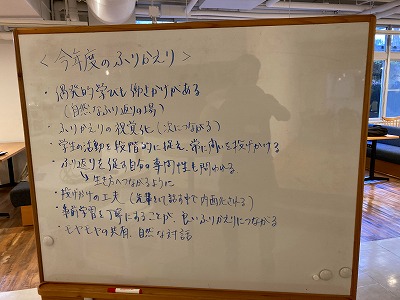 ＜今年度のふりかえり＞
・偶発的学びも働きかけがある
（自然なふり返りの場）
・ふりかえりの視覚化（次につながる）
・学生の活動を段階的に捉え、常に問いを投げかける
・ふり返りを促す自分の専門性も問われる
↳生き方へつながるように
・投げかけの工夫（言葉をして話す中で内面化される）
・事前学習を丁寧にすることが、良いふりかえりにつながる
・モヤモヤの共有、自然な対話